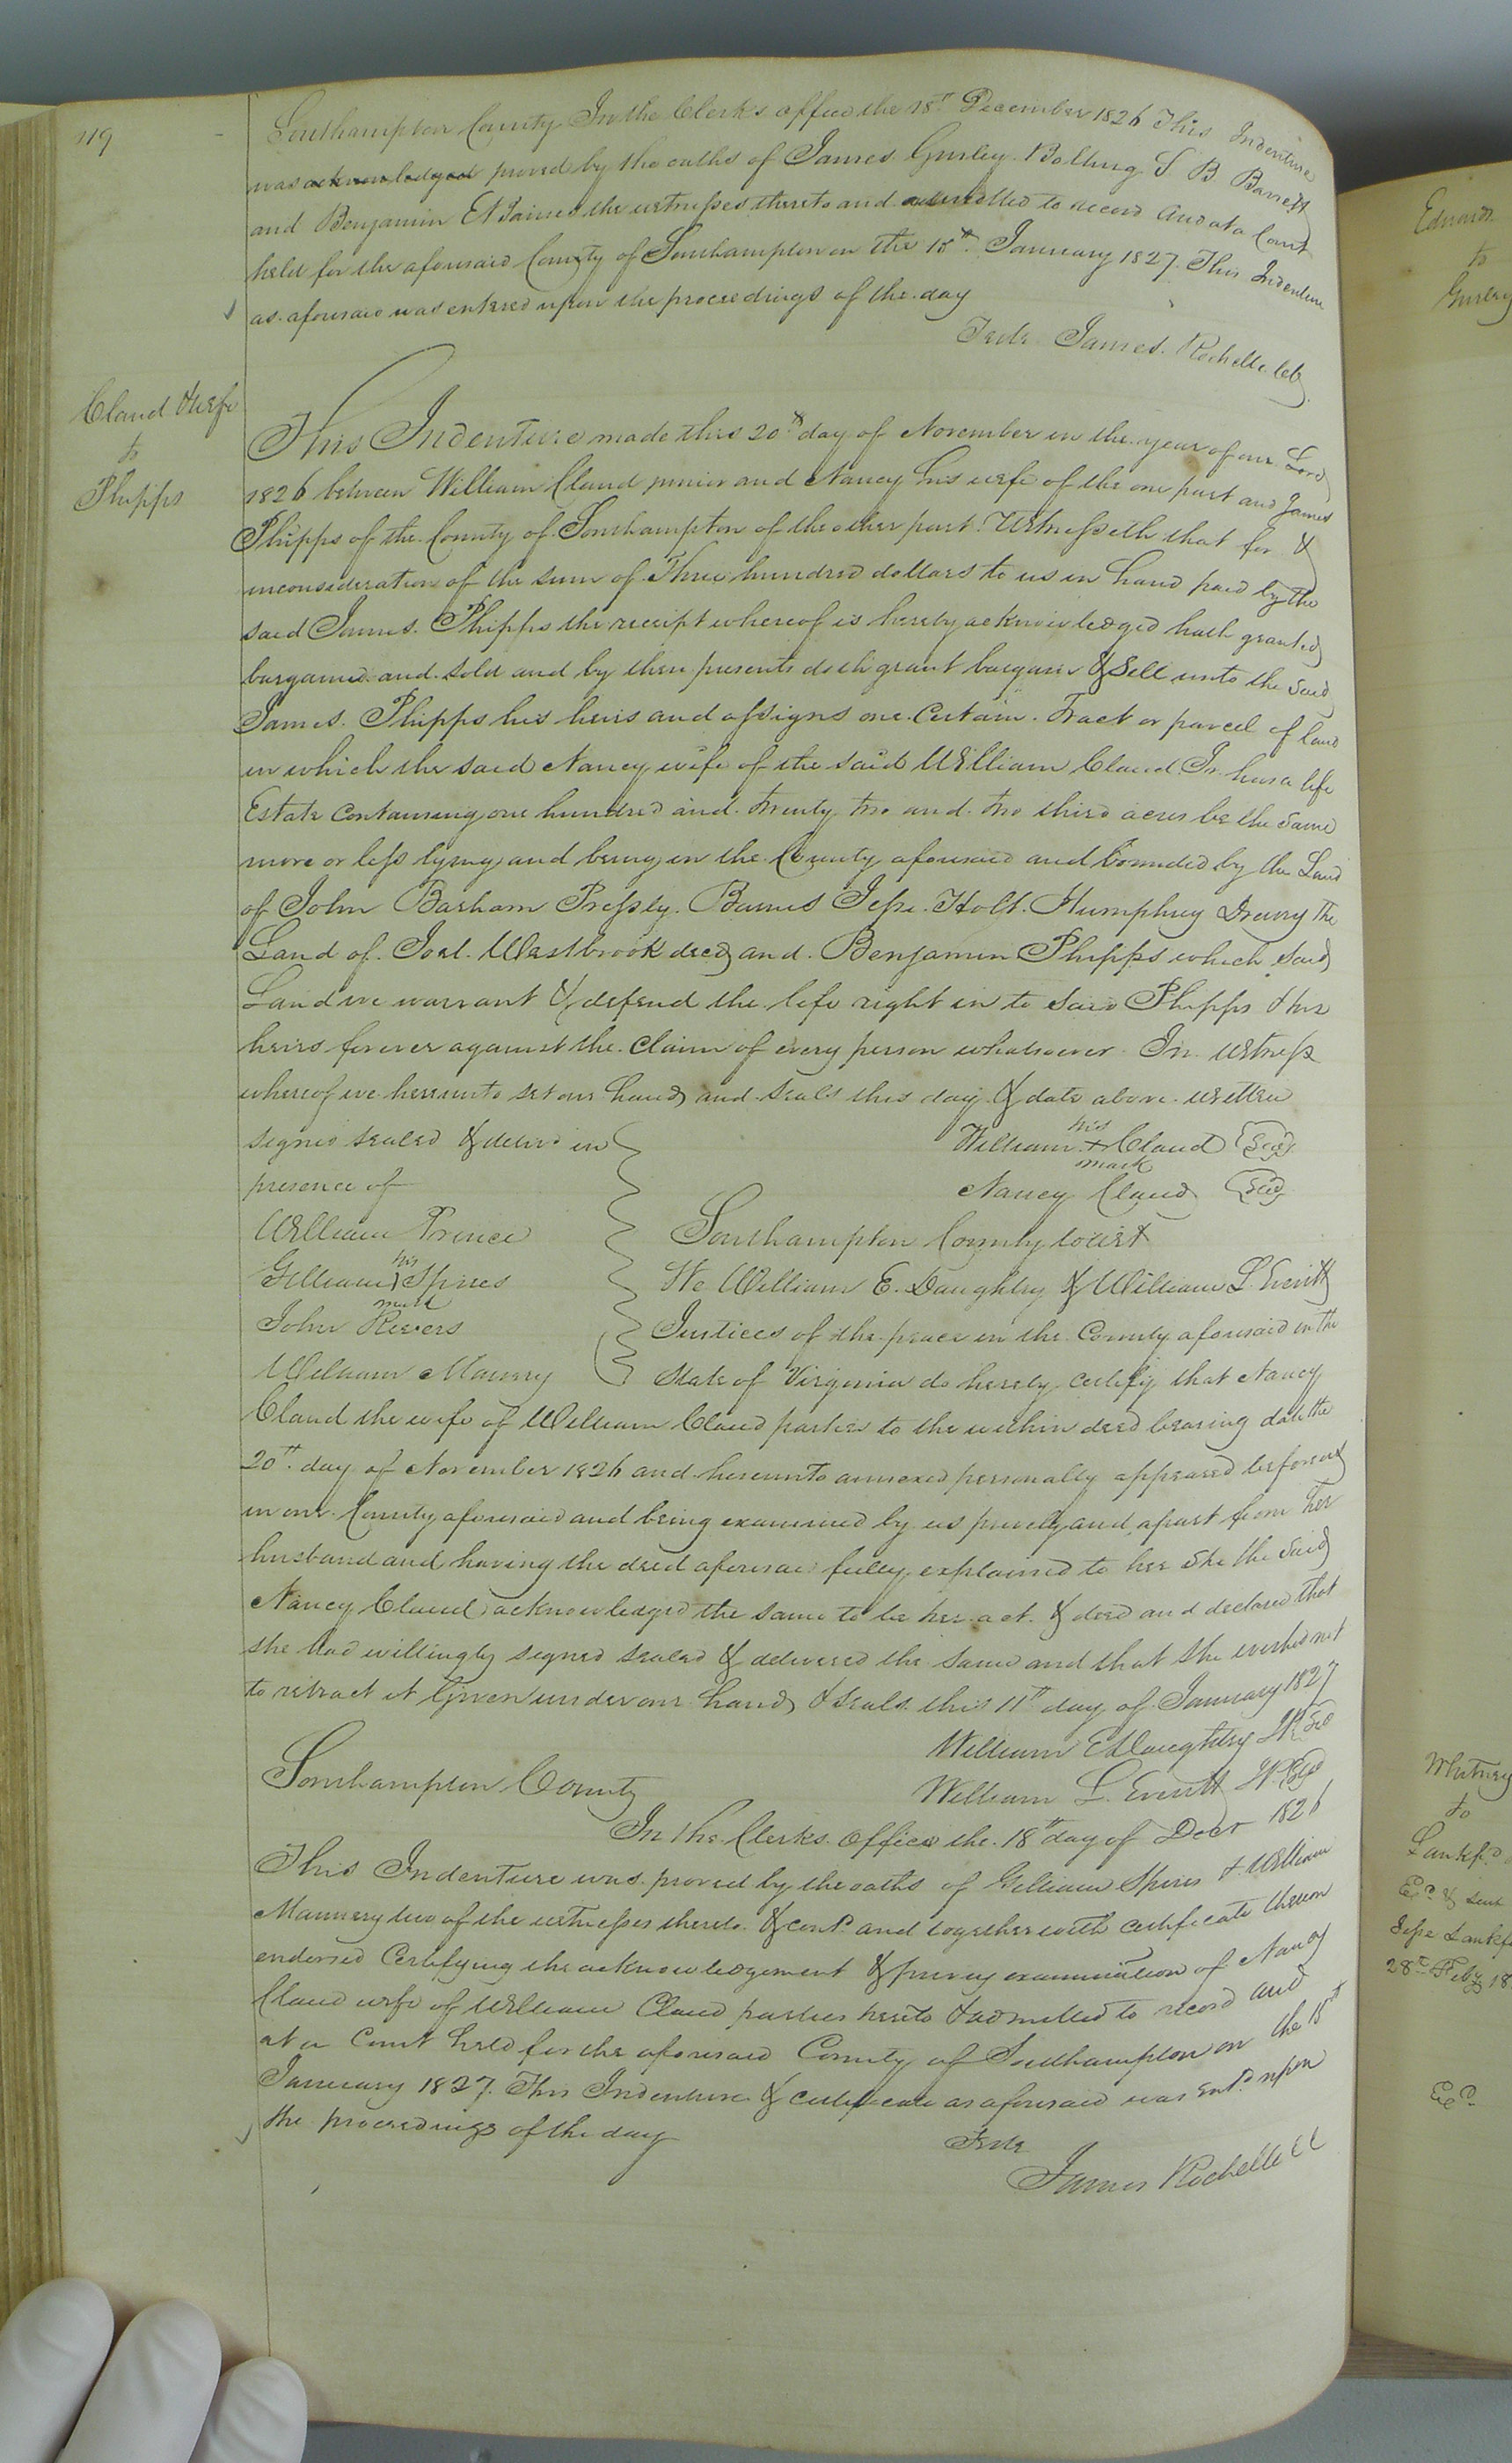 119
Southampton County In the Clerks office the 18th December 1826 This Indenture
was acknowledged proved by the oaths of James Gurley Bolling S B Barrett
and Benjamin E the witnesses thereto and admitted to record And at a Court
held for the aforesaid County of Southampton on the 15th January 1827. This Indenture
as aforesaid was entered upon the proceedings of the day
Teste James Rochelle
Claud & wife
to
Phipps
This Indenture made this 20th day of November in the year of our Lord
1826 between William Claud junior and Nancy his wife of the one part and James
Phipps of the County of Southampton of the other part. Witnesseth that for &
in consideration of the sum of Three hundred dollars to us in hand paid by the
said James Phipps the receipt whereof is hereby acknowledged hath granted
bargained and sold and by these presents doth grant bargain & Sell unto the said
James Phipps his heirs and assigns one Certain Tract or parcel of land
in which the said Nancy wife of the said William Claud Jr. has a life
Estate Containing one hundred and twenty two and two third acres be the same
more or less lying and being in the County aforesaid and bounded by the Land
of John Barham Pressly Barnes Jesse Holt Humphrey Drewry the
Land of Joel Westbrook decd and Benjamin Phipps which said
Land we warrant & defend the life right in to said Phipps & his
heirs forever against the claim of every person whatsoever In Witness
whereof we hereunto set our hands and seals this day & date above written
signed sealed & delivd in
presence of
William Prince
Gilliam his mark Spires
John Rievers
William Mannry
William his + mark Claud Seal
Nancy Claud Seal
Southampton County towit
We William E. Daughtry & William L. Everitt
Justices of the peace in the County aforesaid in the
State of Virginia do hereby certify that Nancy
Claud the wife of William Claud parties to the within deed bearing date the
20th day of November 1826 and hereunto annexed personally appeared before us
in our County aforesaid and being examined by us privily and apart from her
husband and having the deed aforesaid fully explained to her she the said
Nancy Claud acknowledged the same to be her act & deed and declared that
she had willingly signed sealed & delivered the same and that she wished not
to retract it Given under our hands & seals this 11th day of January 1827
William E Daughtry JP Seal
William L. Everitt JP Seal
Southampton County
In the Clerks Office the 18th day of Decr 1826
This Indenture was proved by the oaths of Gilliam Spires & William
Mannery two of the witnesses thereto & contd and together with certificate thereon
endorsed Certifying the acknowledgement & privy examination of Nancy
Claud wife of William Claud parties hereto & admitted to record and
at a Court held for the aforesaid County of Southampton on the 15th
January 1827. This Indenture & certificate as aforesaid was entd upon
the proceedings of the day
Teste
James Rochelle CC
Edwards
to
Gurley
Whitney
to
Lankfd
Exd & sent
Jesse Lankf
28th Feby 18
Exd